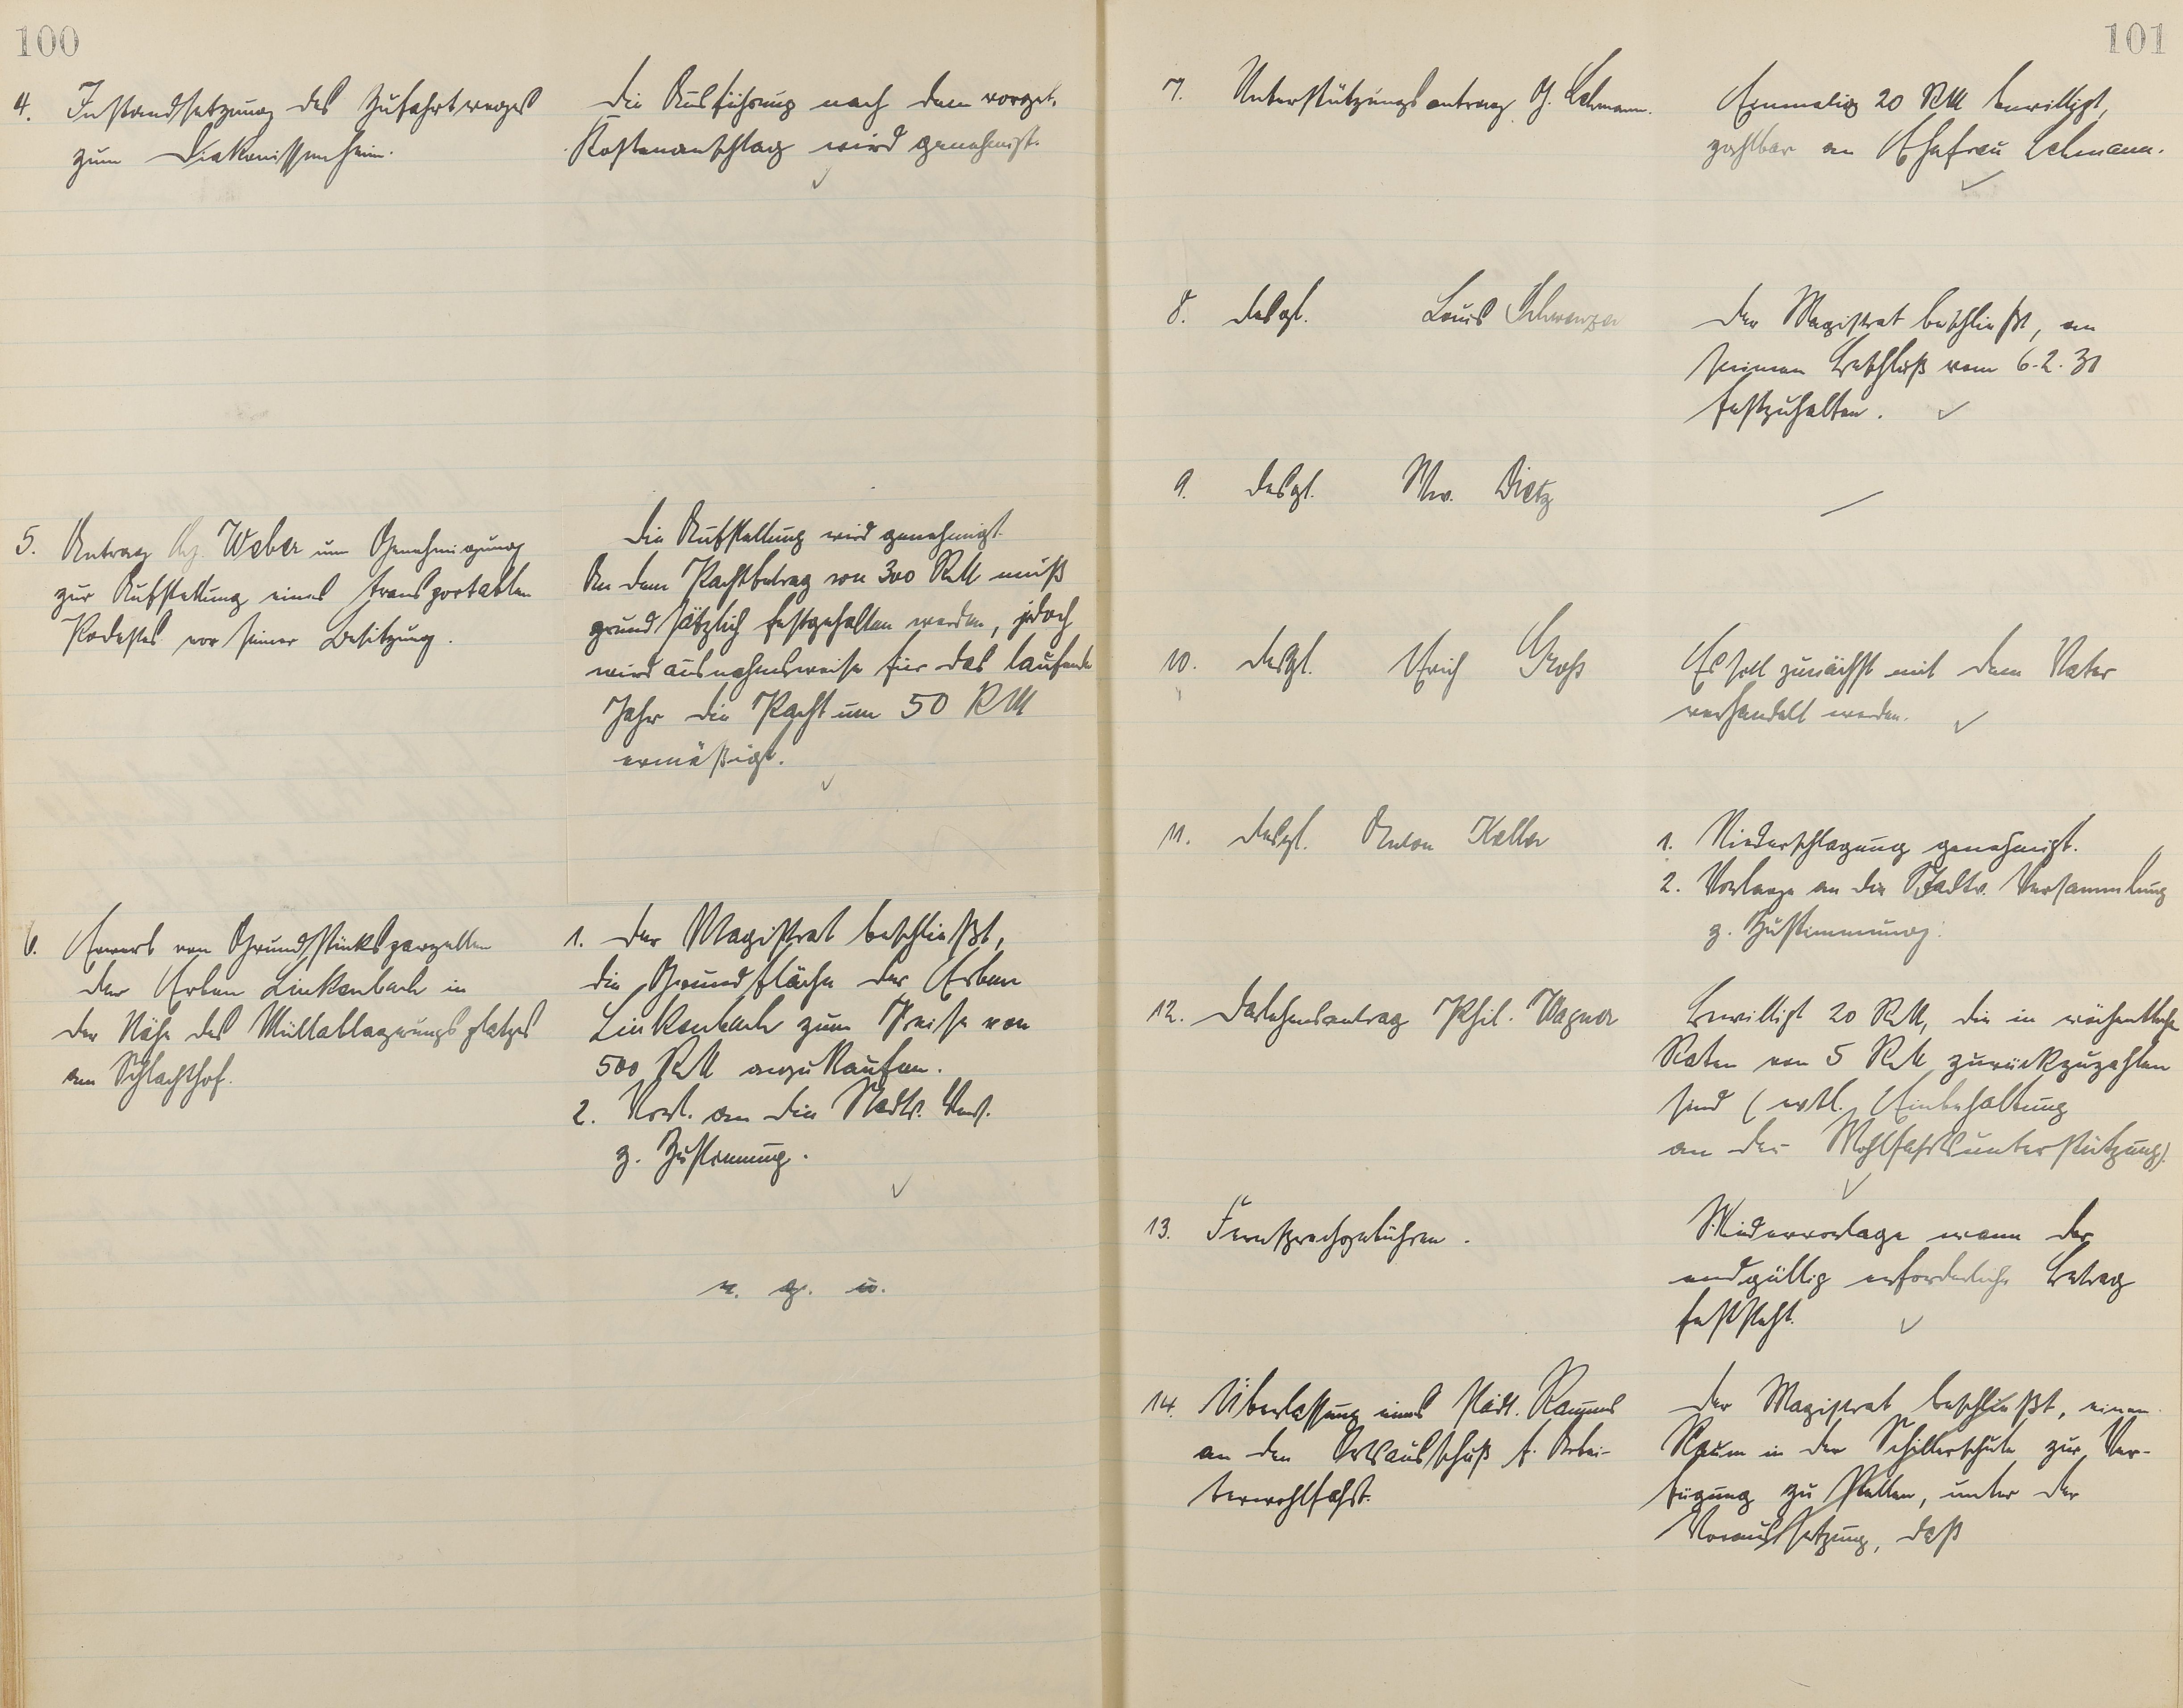 100
4. Instandsetzung des Zufahrtweges
zum Diakonissenheim.
Die Ausführung nach dem vorgel.
Kostenanschlag wird genehmigt.
5. Antrag Weber um Genehmigung
zur Aufstellung eines transportablen
Podestes vor seiner Besitzung.
Die Aufstellung wird genehmigt.
An dem Pachtbetrag von 300 RM muß
grundsätzlich festgehalten werden, jedoch
wird ausnahmsweise für das laufende
Jahr die Pacht um 50 RM
ermäßigt.
6. Erwerb von Grundstücksparzellen
der Erben Linkenbach in
der Nähe des Müllablagerungsplatzes
am Schlachthof.
1. Der Magistrat beschließt,
die Grundfläche der Erben
Linkenbach zum Preise von
500 RM anzukaufen.
2. Vorl. an die Stadtv. Vers.
z. Zustimmung.
v. g. u.
101
7. Unterstützungsantrag G. Lehmann.
Einmalig 20 RM bewilligt,
zahlbar an Ehefrau Lehmann.
8. desgl. Louis Schwenzer
Der Magistrat beschließt, an
seinem Beschluß vom 6.2.30
festzuhalten.
9. desgl. Ww. Dietz
—
10. desgl. Erich Groß
Es soll zunächst mit dem Vater
verhandelt werden.
11. desgl. Anton Keller
1. Niederschlagung genehmigt.
2. Vorlage an die Stadtv. Versammlung
z. Zustimmung.
12. Darlehensantrag Phil. Wagner
Bewilligt 20 RM, die in wöchentliche
Raten von 5 RM zurückzuzahlen
sind (evtl. Einbehaltung
an der Wohlfahrtsunterstützung).
13. Fernsprechgebühren.
Wiedervorlage wann der
endgültig erforderliche Betrag
feststeht.
14. Überlassung eines städt. Raumes
an den Ortsausschuß f. Arbei-
terwohlfahrt.
Der Magistrat beschließt, einen
Raum in der Schillerschule zur Ver-
fügung zu stellen, unter der
Voraussetzung, daß